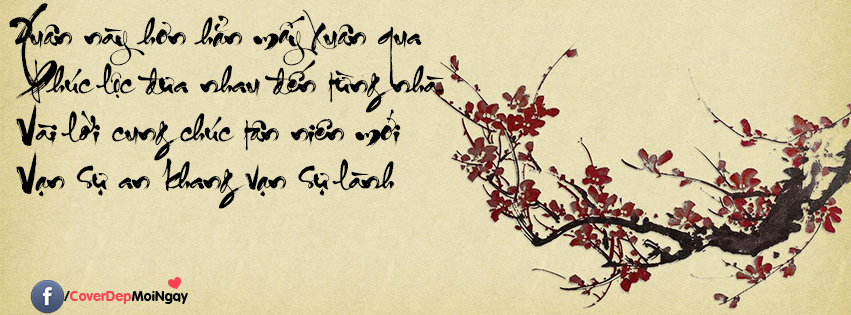 Xuân này hơn hẳn mấy Xuân qua
Phúc lộc đưa nhau đến từng nhà
Vài lời cung chúc tân niên mới
Vạn sự an khang vạn sự lành
f/CoverDepMoiNgay